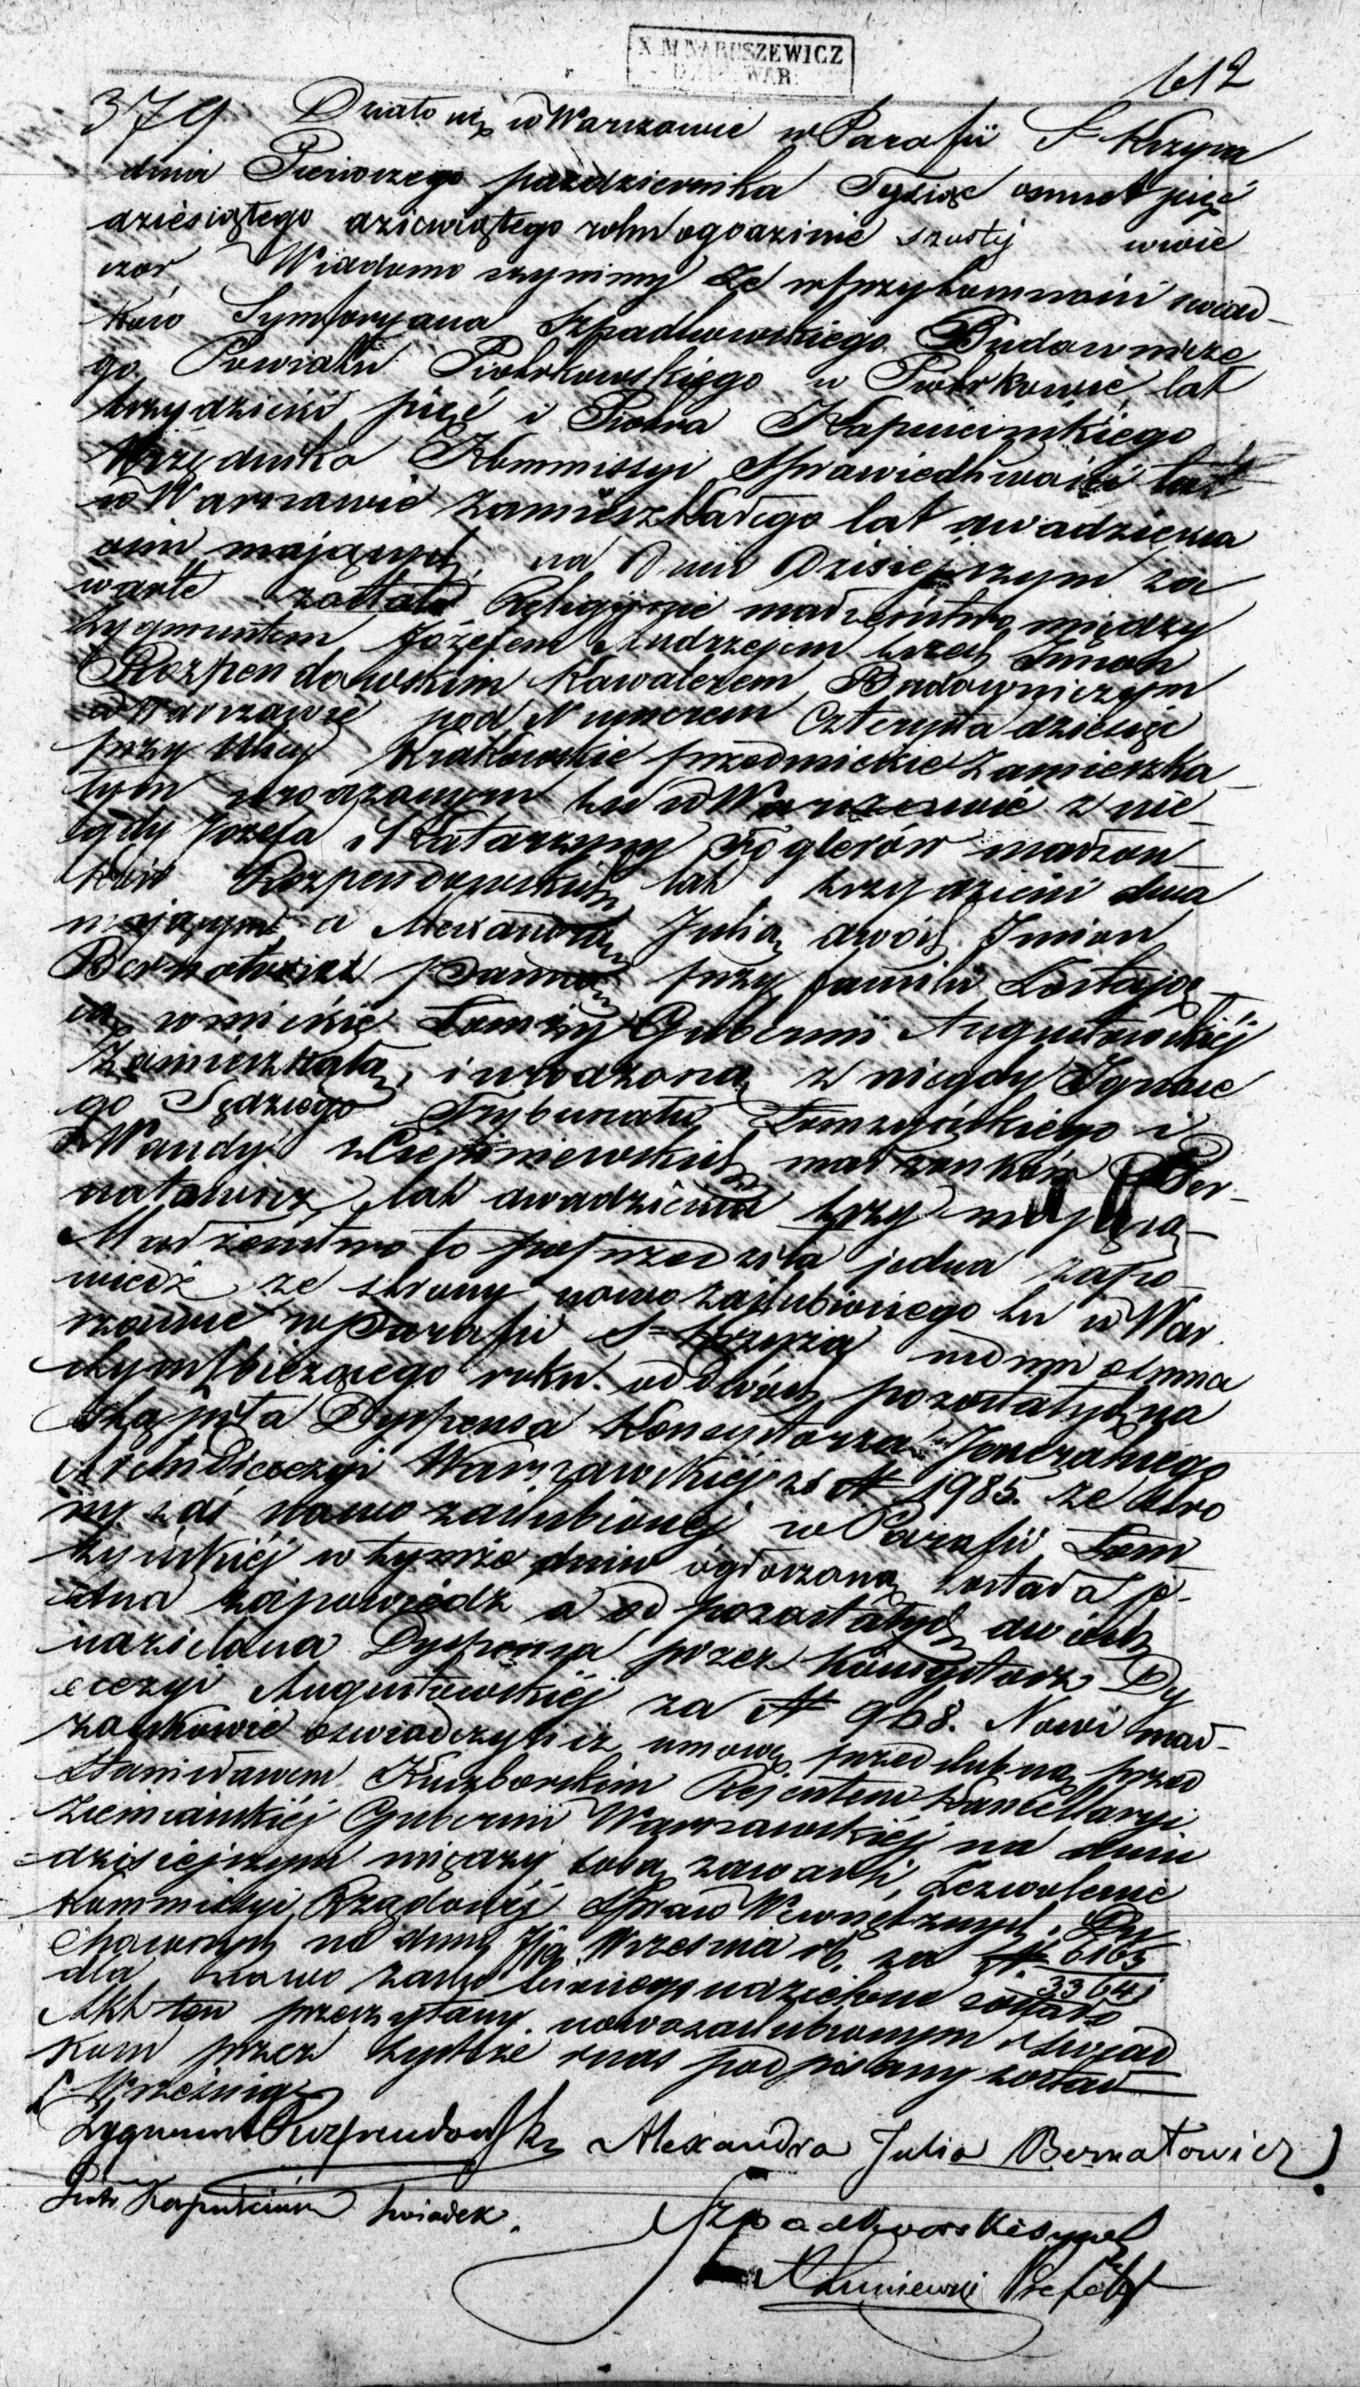 X. M. NARUSZEWICZ
DZIE. WAR.
612
379 Działo się w Warszawie w Parafii S- Krzyża
dnia Pierwszego października Tysiąc osmset pięć
dziesiątego dziewiątego roku o godzinie szostej wwie
czor Wiadomo czynimy że w przytomności swiad
kow Symforyana Szpadkowskiego Budownicze
go Powiatu Piotrkowskiego w Piotrkowie, lat
trzydzieści pięć i Piotra Kapuścińskiego
Urzędnika Kommissyi Sprawiedliwości tu
w Warszawie zamieszkałego lat dwadzieścia
osim mających, na Dniu Dzisiejszym za
warte zostało Religijne małżeństwo między
Zygmuntem Józefem Andrzejem trzech Imion
Rozpendowskim Kawalerem Budowniczym
w Warszawie pod Numerem Czterysta dziesięć
przy Ulicy Krakowskie przedmieście Zamieszka
łym urodzonym tu w Warszawie z nie
gdy Józefa i Katarzyny Foglerów małżon
ków Rozpendowskich lat trzydzieści dwa
mającym a Alexandrą Julią dwóch Imion
Bernatowicz Panną przy familii Zostają
cą w mieście Łomży Gubernii Augustowskiéj
Zamieszkałą, i urodzoną z niegdy Ignace
go Sędziego Trybunału Łomżyńskiego i
Wandy z małżonków Ber-
natowicz, lat dwadzieścia trzy mającą
Małżeństwo to poprzedziła jedna zapo
wiedź ze strony nowo zaślubionego tu w War
szawie w Parafii S- Krzyża w dniu osmna
stym bieżącego roku. od dwóch pozostałych za
stąpiła Dyspensa Konsystorza Jeneralnego
Archidiecezyi Warszawskiéj za N 1985. ze stro
ny zaś nowo zaślubionéj w Parafii Łom
żyńskiéj w tymże dniu ogłoszoną została je-
dna zapowiedź a od pozostałych dwóch
udzielana Dyspensa przez Konsystorz Dy
ecezyi Augustowskiéj za N 968. Nowi mał-
żonkowie oswiadczyli iż umowę przedślubną przed
Stanisławem Kuczborskim Rejentem Kancellaryi
Ziemiańskiéj Gubernii Warszawskiéj na dniu
dzisiejszym między sobą zawarli, Zezwolenie
Kommissyi Rządowéj Spraw Wewnętrznych i Du
chownych na dniu 7/19 Września rb. za N 6165
3364
dla nowo zaślubionego udzielone zostało
Akt ten przeczytany nowozaślubionym i swiad
kom przez tychże i nas podpisany został
Września
Zygmunt Rozpendowski Alexandra Julia Bernatowicz
Piotr Kapuściński swiadek.
Szpadkowski